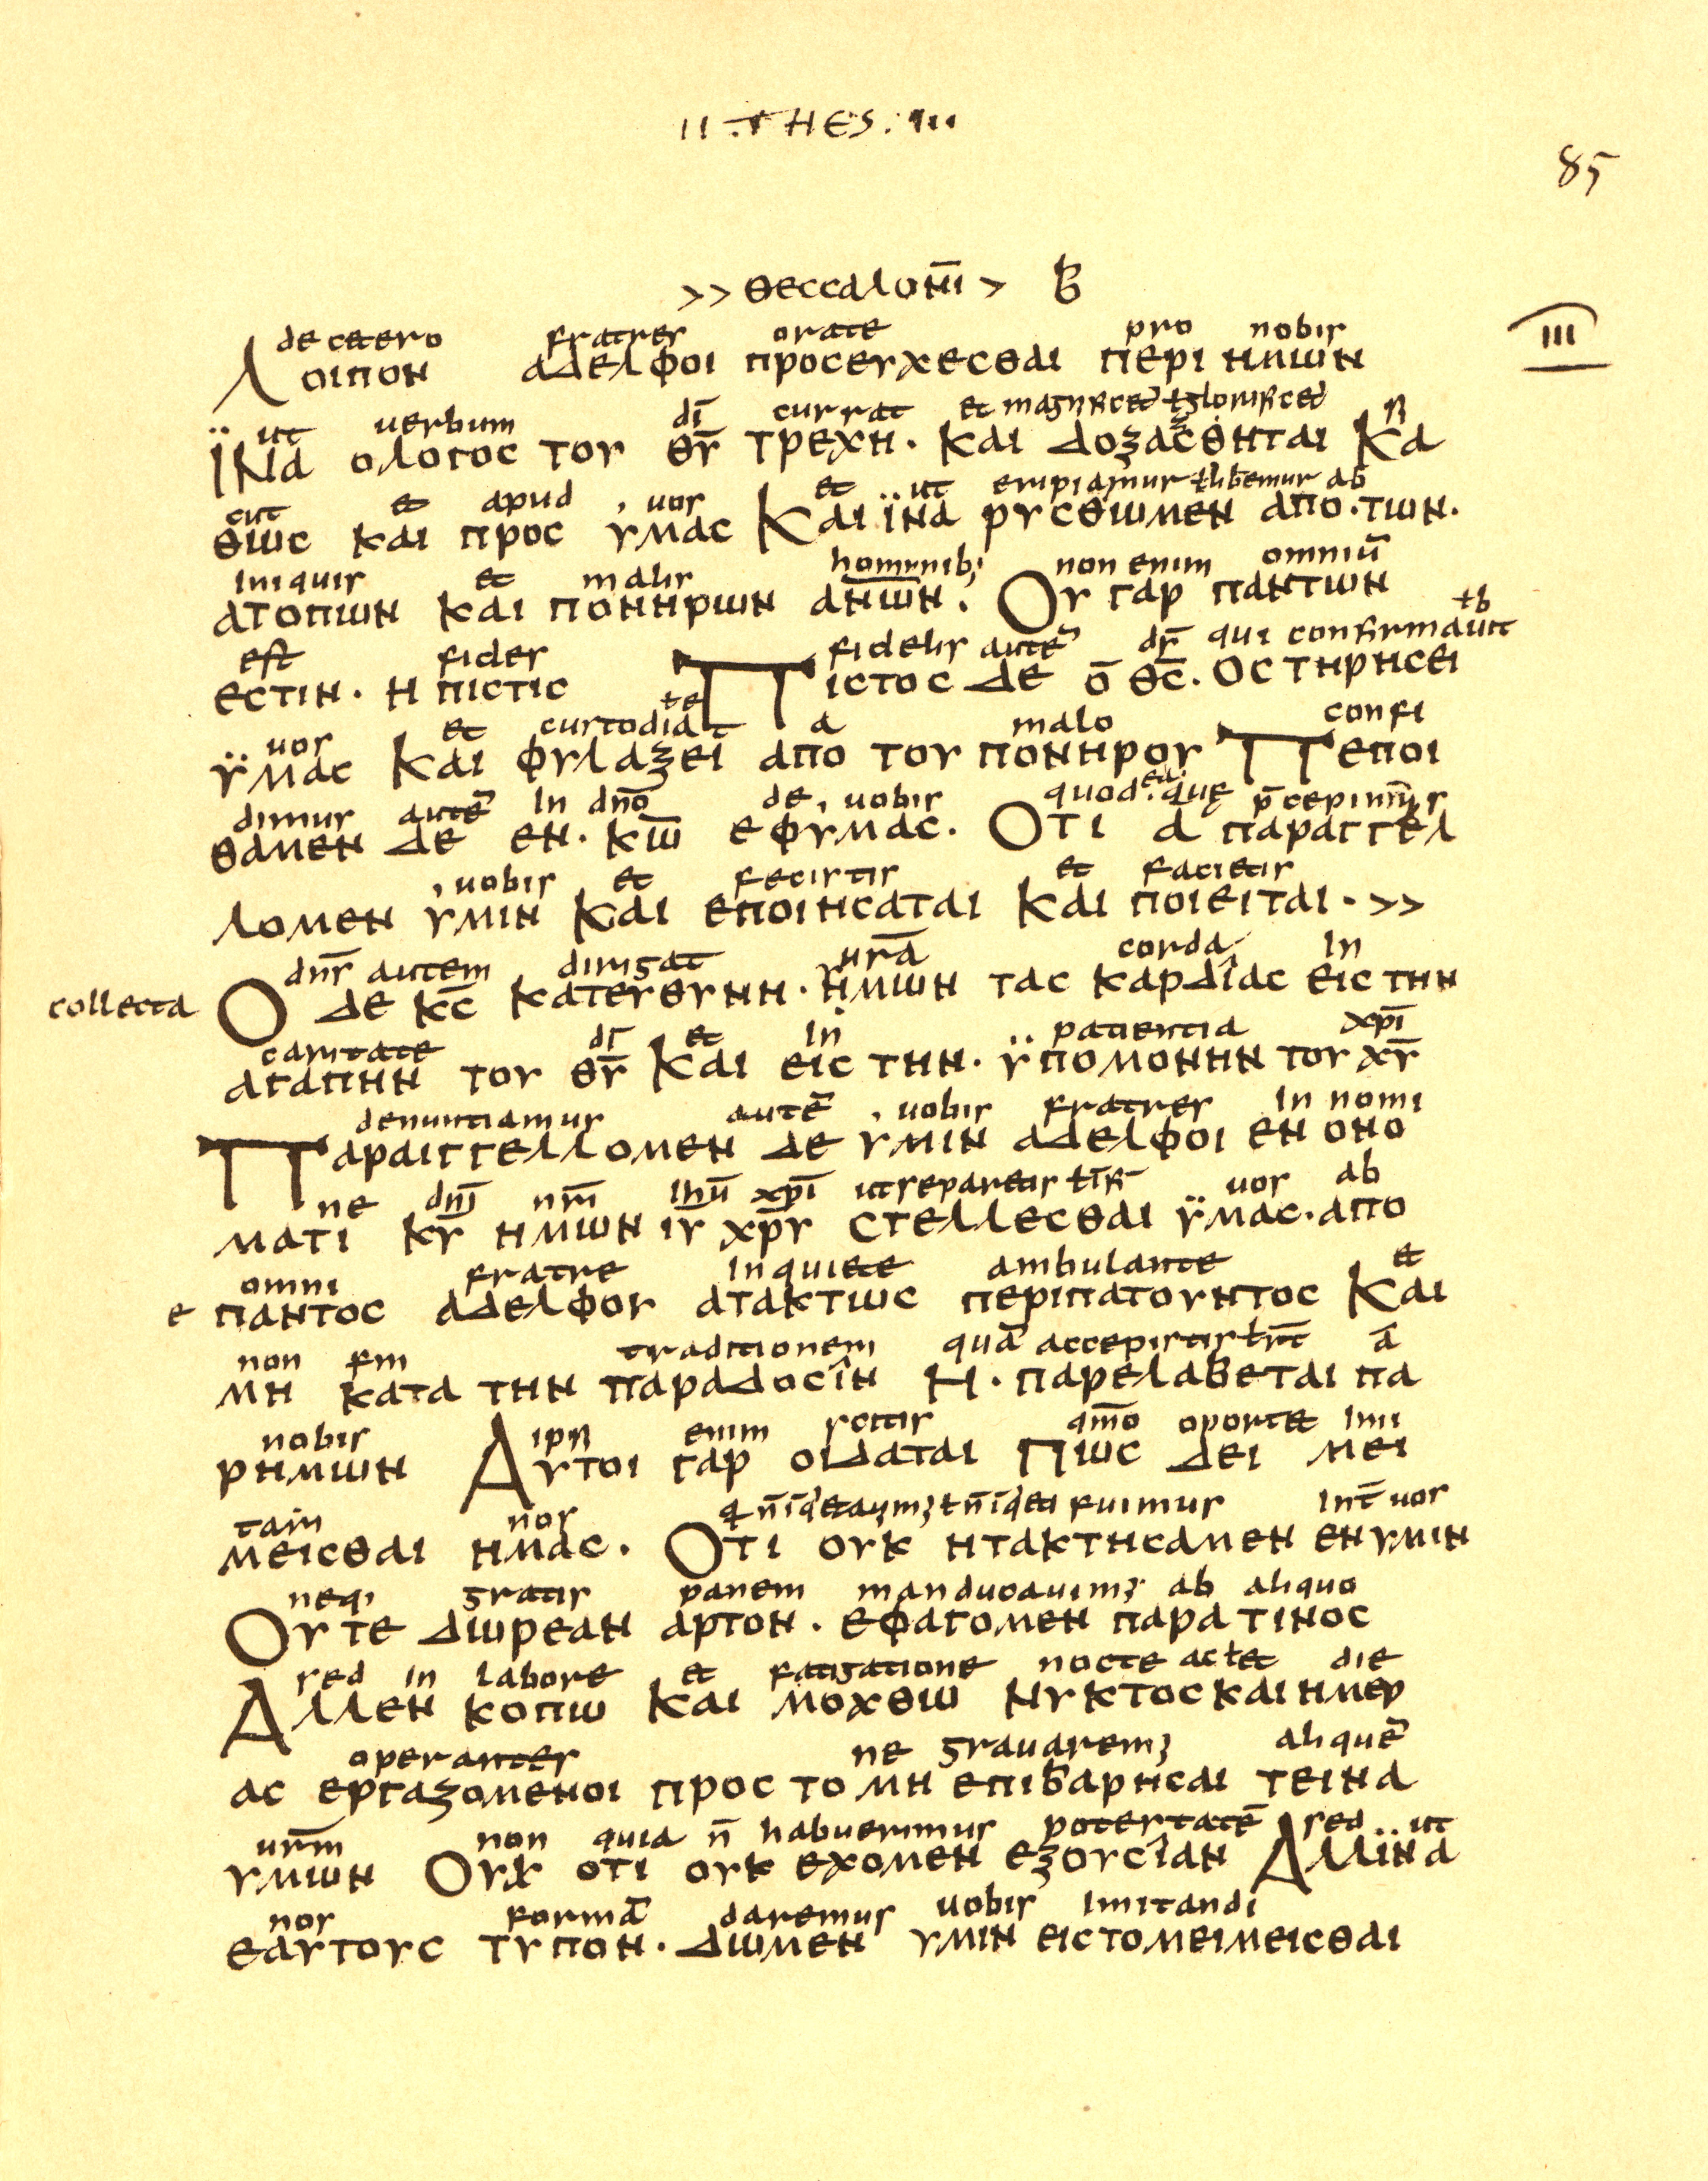 II. THES. III
85
>> ΘΕϹϹΑΛΟΝ̅Ι > Β
de cetero fratres orate pro nobis III
ΛΟΙΠΟΝ ΑΔΕΛΦΟΙ ΠΡΟϹΕΥΧΕϹΘΑΙ ΠΕΡΙ ΗΜΩΝ
ut uerbum dī currat et magnificet ł glorificet
ΪΝΑ ΟΛΟΓΟϹ ΤΟΥ Θ̅Υ̅ ΤΡΕΧΗ· ΚΑΙ ΔΟΞΑϹΘΗΤΑΙ ΚΑ
cut et apud uos et ut eripiamur ł libemur ab
ΘΩϹ ΚΑΙ ΠΡΟϹ ΥΜΑϹ ΚΑΙ ΪΝΑ ΡΥϹΘΩΜΕΝ ΑΠΟ·ΤΩΝ·
iniquis et malis hominib; non enim omniū
ΑΤΟΠΩΝ ΚΑΙ ΠΟΝΗΡΩΝ ΑΝ̅Ω̅Ν· ΟΥ ΓΑΡ ΠΑΝΤΩΝ
est fides fidelis autē ds̄ qui confirmauit ł b
ΕϹΤΙΝ· Η ΠΙϹΤΙϹ ΠΙϹΤΟϹ ΔΕ Ο̅ Θ̅Ϲ̅· ΟϹ ΤΗΡΗϹΕΙ
uos et custodiat ł e a malo confi
ΫΜΑϹ ΚΑΙ ΦΥΛΑΞΕΙ ΑΠΟ ΤΟΥ ΠΟΝΗΡΟΥ ΠΕΠΟΙ
dimus autē in dn̄o de uobis quod ea quę p̄cepimus
ΘΑΜΕΝ ΔΕ ΕΝ· Κ̅Ω̅ ΕΦΥΜΑϹ· ΟΤΙ Α ΠΑΡΑΓΓΕΛ
uobis et fecistis et facietis
ΛΟΜΕΝ ΥΜΙΝ ΚΑΙ ΕΠΟΙΗϹΑΤΑΙ ΚΑΙ ΠΟΙΕΙΤΑΙ· >>
dns̄ autem dirigat urā corda in
collecta Ο ΔΕ Κ̅Ϲ̅ ΚΑΤΕΥΘΥΝΗ· ΗΜΩΝ ΤΑϹ ΚΑΡΔΙΑϹ ΕΙϹ ΤΗΝ
caritate dī et in patientia xpī
ΑΓΑΠΗΝ ΤΟΥ Θ̅Υ̅ ΚΑΙ ΕΙϹ ΤΗΝ· ΫΠΟΜΟΝΗΝ ΤΟΥ Χ̅Υ̅
denuntiamus autē uobis fratres in nomi
ΠΑΡΑΙΓΓΕΛΛΟΜΕΝ ΔΕ ΥΜΙΝ ΑΔΕΛΦΟΙ ΕΝ ΟΝΟ
ne dn̄i nr̄i ihū xpī ut separetis uos ab
ΜΑΤΙ Κ̅Υ̅ ΗΜΩΝ Ι̅Υ̅ Χ̅Ρ̅Υ̅ ϹΤΕΛΛΕϹΘΑΙ ΫΜΑϹ·ΑΠΟ
omni fratre inquiete ambulante et
e ΠΑΝΤΟϹ ΑΔΕΛΦΟΥ ΑΤΑΚΤΩϹ ΠΕΡΙΠΑΤΟΥΝΤΟϹ ΚΑΙ
non sm traditionem quā accepistis ł rn̄t ā
ΜΗ ΚΑΤΑ ΤΗΝ ΠΑΡΑΔΟϹΙΝ Η· ΠΑΡΕΛΑΒΕΤΑΙ ΠΑ
nobis ipsi enim scitis qm̄o oportet imi
ΡΗΜΩΝ ΑΥΤΟΙ ΓΑΡ ΟΙΔΑΤΑΙ ΠΩϹ ΔΕΙ ΜΕΙ
tari nos fuimus int̄ uos
ΜΕΙϹΘΑΙ ΗΜΑϹ· ΟΤΙ ΟΥΚ ΗΤΑΚΤΗϹΑΜΕΝ ΕΝΥΜΙΝ
neq; gratis panem manducauim; ab aliquo
ΟΥ ΤΕ ΔΩΡΕΑΝ ΑΡΤΟΝ· ΕΦΑΓΟΜΕΝ ΠΑΡΑ ΤΙΝΟϹ
sed in labore et fatigatione nocte ac ł et die
ΑΛΛΕΝ ΚΟΠΩ ΚΑΙ ΜΟΧΘΩ ΝΥΚΤΟϹ ΚΑΙ ΗΜΕΡ
operantes ne grauarem; aliquē
ΑϹ ΕΡΓΑΖΟΜΕΝΟΙ ΠΡΟϹ ΤΟ ΜΗ ΕΠΙΒΑΡΗϹΑΙ ΤΕΙΝΑ
urm̄ non quia n̄ habuerimus potestatē sed ut
ΥΜΩΝ ΟΥΧ ΟΤΙ ΟΥΚ ΕΧΟΜΕΝ ΕΞΟΥϹΙΑΝ ΑΛΛΪΝΑ
nos formā daremus uobis imitandi
ΕΑΥΤΟΥϹ ΤΥΠΟΝ· ΔΩΜΕΝ ΥΜΙΝ ΕΙϹΤΟΜΕΙΜΕΙϹΘΑΙ